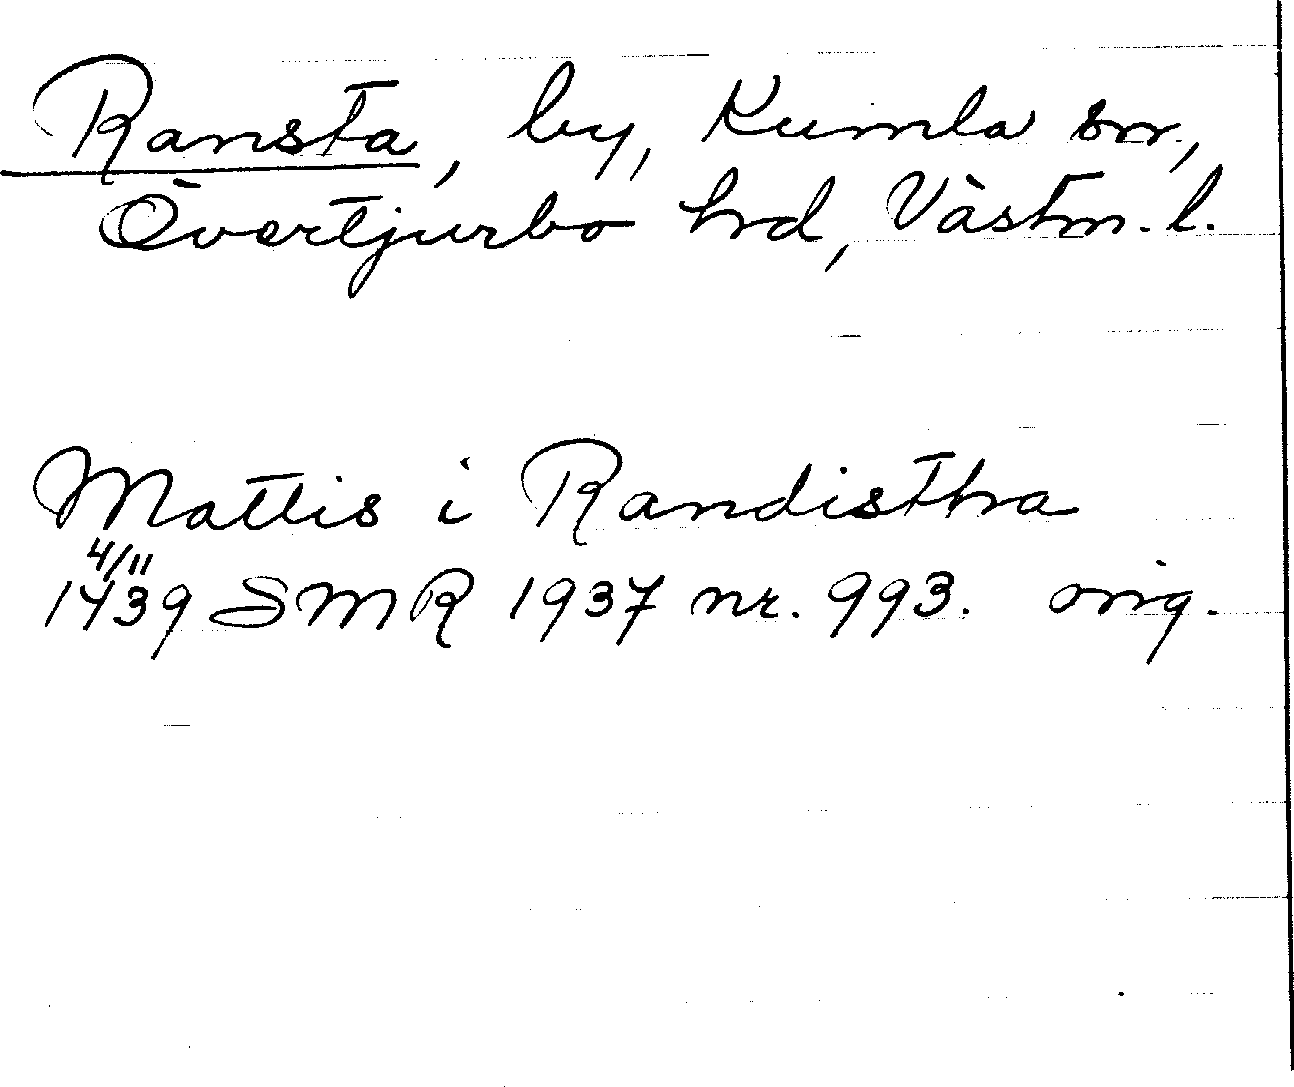 Ransta, by, Kumla sn,
Övertjurbo hrd, Västm. l.
Mattis i Randistha
4/11
1439 SMR 1937 nr. 993. orig.